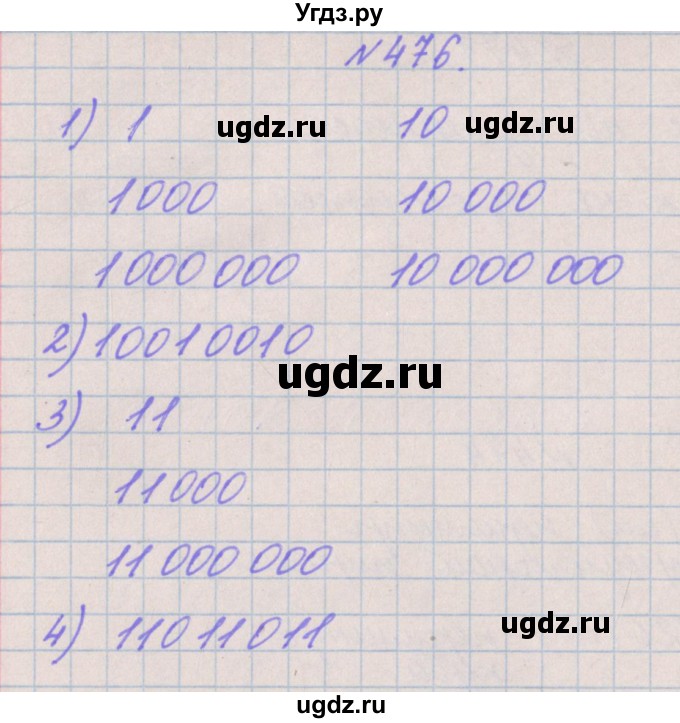 Угдз.ру
№476.
1) 1 ugdz.ru 10 ugdz.ru
1000 10 000
1 000 000 10 000 000
2) 10010010
ugdz.ru
3) 11
11000
11 000 000
4) 11011011 ugdz.ru
ugdz.ru